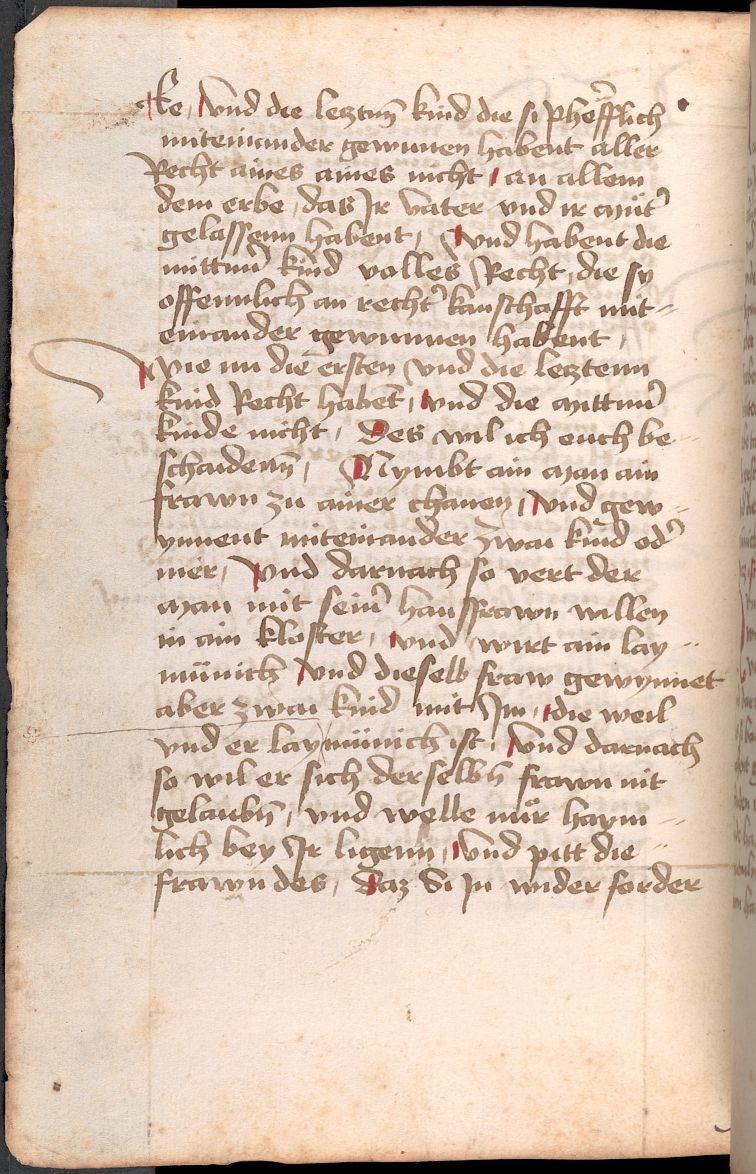 ke, Vnd die leztnn̄ kind die si phefflich
miteinander gewunnen habent aller
Recht aines aines nicht, an allem
dem erbe, das Jr vater vnd ir mut᾽
gelassenn habent, Vnd habent die
mittnn̄ kind volles Recht, die sy
offennlich an recht᾽ kanschafft mit=
einander gewunnen habent,
wie nu die ersten vnd die leztenn
kind Recht haben̄t, vnd die mittnn᾽
kinde nicht, Des wil ich euch be=
schaidenn̄, Nymbt ain man ain
frawn zu ainer chanen, Vnd gew=
ynnent miteinander zwai kind od᾽
mer, Vnd darnach so vert der
man mit sein᾽ hausfrawn willen
in ain kloster, vnd wirt ain lay=
münich Vnd dieselb fraw gewynnet
aber zwai kind mit Jm, die weil
vnd er laymünich ist, Vnd darnach
so wil er sich derselbn̄ frawn nit
gelaubn̄, vnd welle nür haym=
lich bey Jr ligenn, Vnd pitt die=
frawn des, Daz Si Jn wider forder